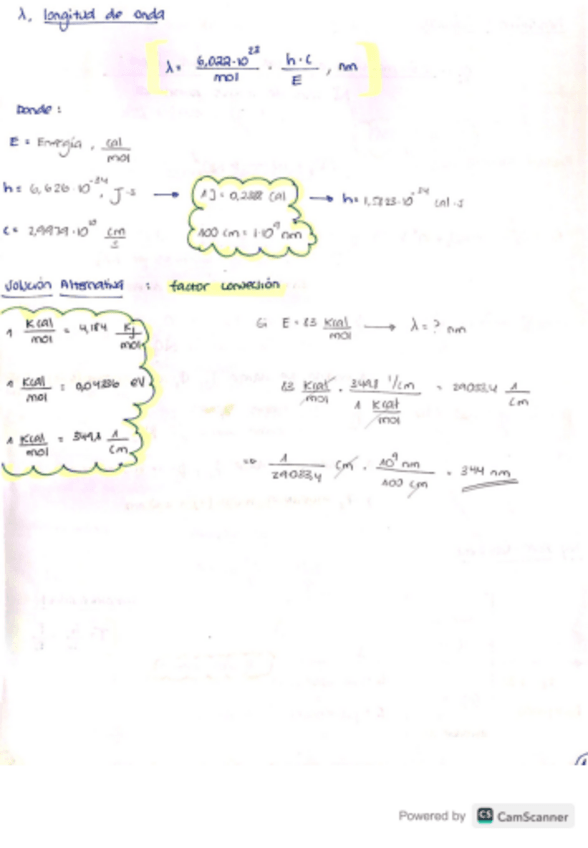 λ, longitud de onda
λ = 6,022·10²³/mol · h·c/E , nm
Donde :
E = Energía , cal/mol
h = 6,626·10⁻³⁴, J·s → 1J = 0,2388 cal → h = 1,5823·10⁻³⁴ cal·s
c = 2,9979·10¹⁰ cm/s 100 cm = 1·10⁹ nm
Solución Alternativa : factor conversión
1 Kcal/mol = 4,184 Kj/mol
Si E = 83 Kcal/mol → λ = ? nm
1 Kcal/mol = 0,04336 eV
83 Kcal/mol · 349,8 1/cm / 1 Kcal/mol = 29033,4 1/cm
1 Kcal/mol = 349,8 1/cm
⇒ 1/29033,4 cm · 10⁹ nm/100 cm = 344 nm
Powered by CS CamScanner